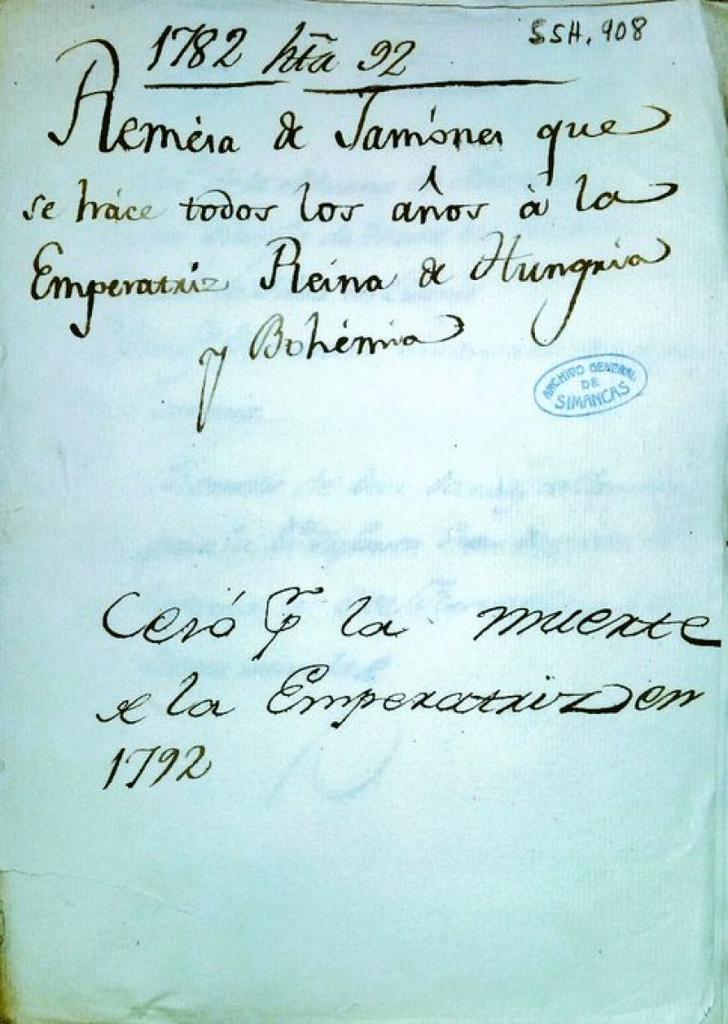 SSH. 908
1782 hta 92
Remésa de Jamónes que
se háce todos los años à la
Emperatriz Reina de Hungria
y Bohémia
ARCHIVO GENERAL
DE
SIMANCAS
Cesó por la muerte
de la Emperatriz en
1792